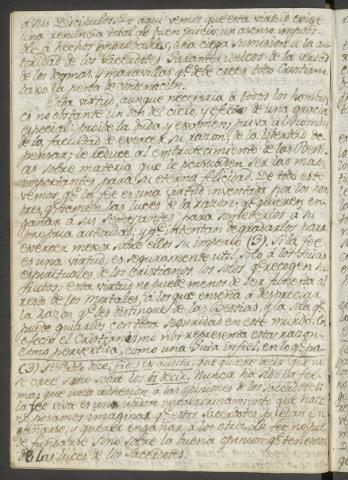 a sus Discipulos. De aqui vemos que esta virtud exige
una renuncia total de buen juicio, un asenso
a hechos improbables, una ciega sumision a la au-
toridad de los Sacerdotes Garantes unicos de la verdad
de los dogmas, y maravillas qe. debe creer todo Cristiano
baxo la pena de condenacion.
Esta virtud, aunque necesaria a todos los hombres
es no obstante un don del cielo, y efecto de una gracia
especial: proibe la duda, y examen; priva al hombre
de la facultad de exercer su razon, de la libertad de
pensar; le reduce al embrutecimiento de las Bes-
tias sobre materias que le persuaden ser las mas
importantes para su eterna felicidad. De todo esto
vemos qe. la fee es una virtud inventada por los hom-
bres, qe. temen las luces de la razon; qe. quieren en-
gañar a sus Semejantes para someterlos a su
propria autoridad; y qe. intentan degradarlos para
exercer mejor sobre ellos su imperio (3). Si la fee
es una virtud, es seguramente util solo a los Guias
espirituales de los Cristianos los solos qe. recogen sus
frutos: esta virtud no puede menos de ser funesta al
resto de los Mortales, a los que enseña a despreciar
la razon qe. les distingue de las Bestias, y la sola qe.
puede guiarlos con toda seguridad en este mundo. En
efecto el Cristianismo nos representa esta razon
como pervertida, como una Guia infiel, en lo qe. pa-
(3) Sn. Pablo dice, fides ex auditu;
se cree sino sobre los Nunca ha sido la fee
mas que una adhesion a las opiniones de los Sacerdotes: la
la fee viva es una piadosa encaprichamiento que hace
no podamos imaginar qe. estos Sacerdotes puedan en-
gañarse, ni querer engañar a los otros. La fee no puede
fundarse sino sobre la buena opinion qe. tenemos
de las luces de los Sacerdotes.